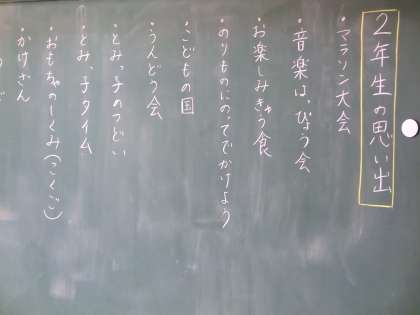 2年生の思い出
・マラソン大会
・音楽はっぴょう会
・お楽しみきゅう食
・のりものにのってでかけよう
・こどもの国
・うんどう会
・とみっ子のつどい
・とみっ子タイム
・おもちゃのしくみ(こくご)
・かけざん